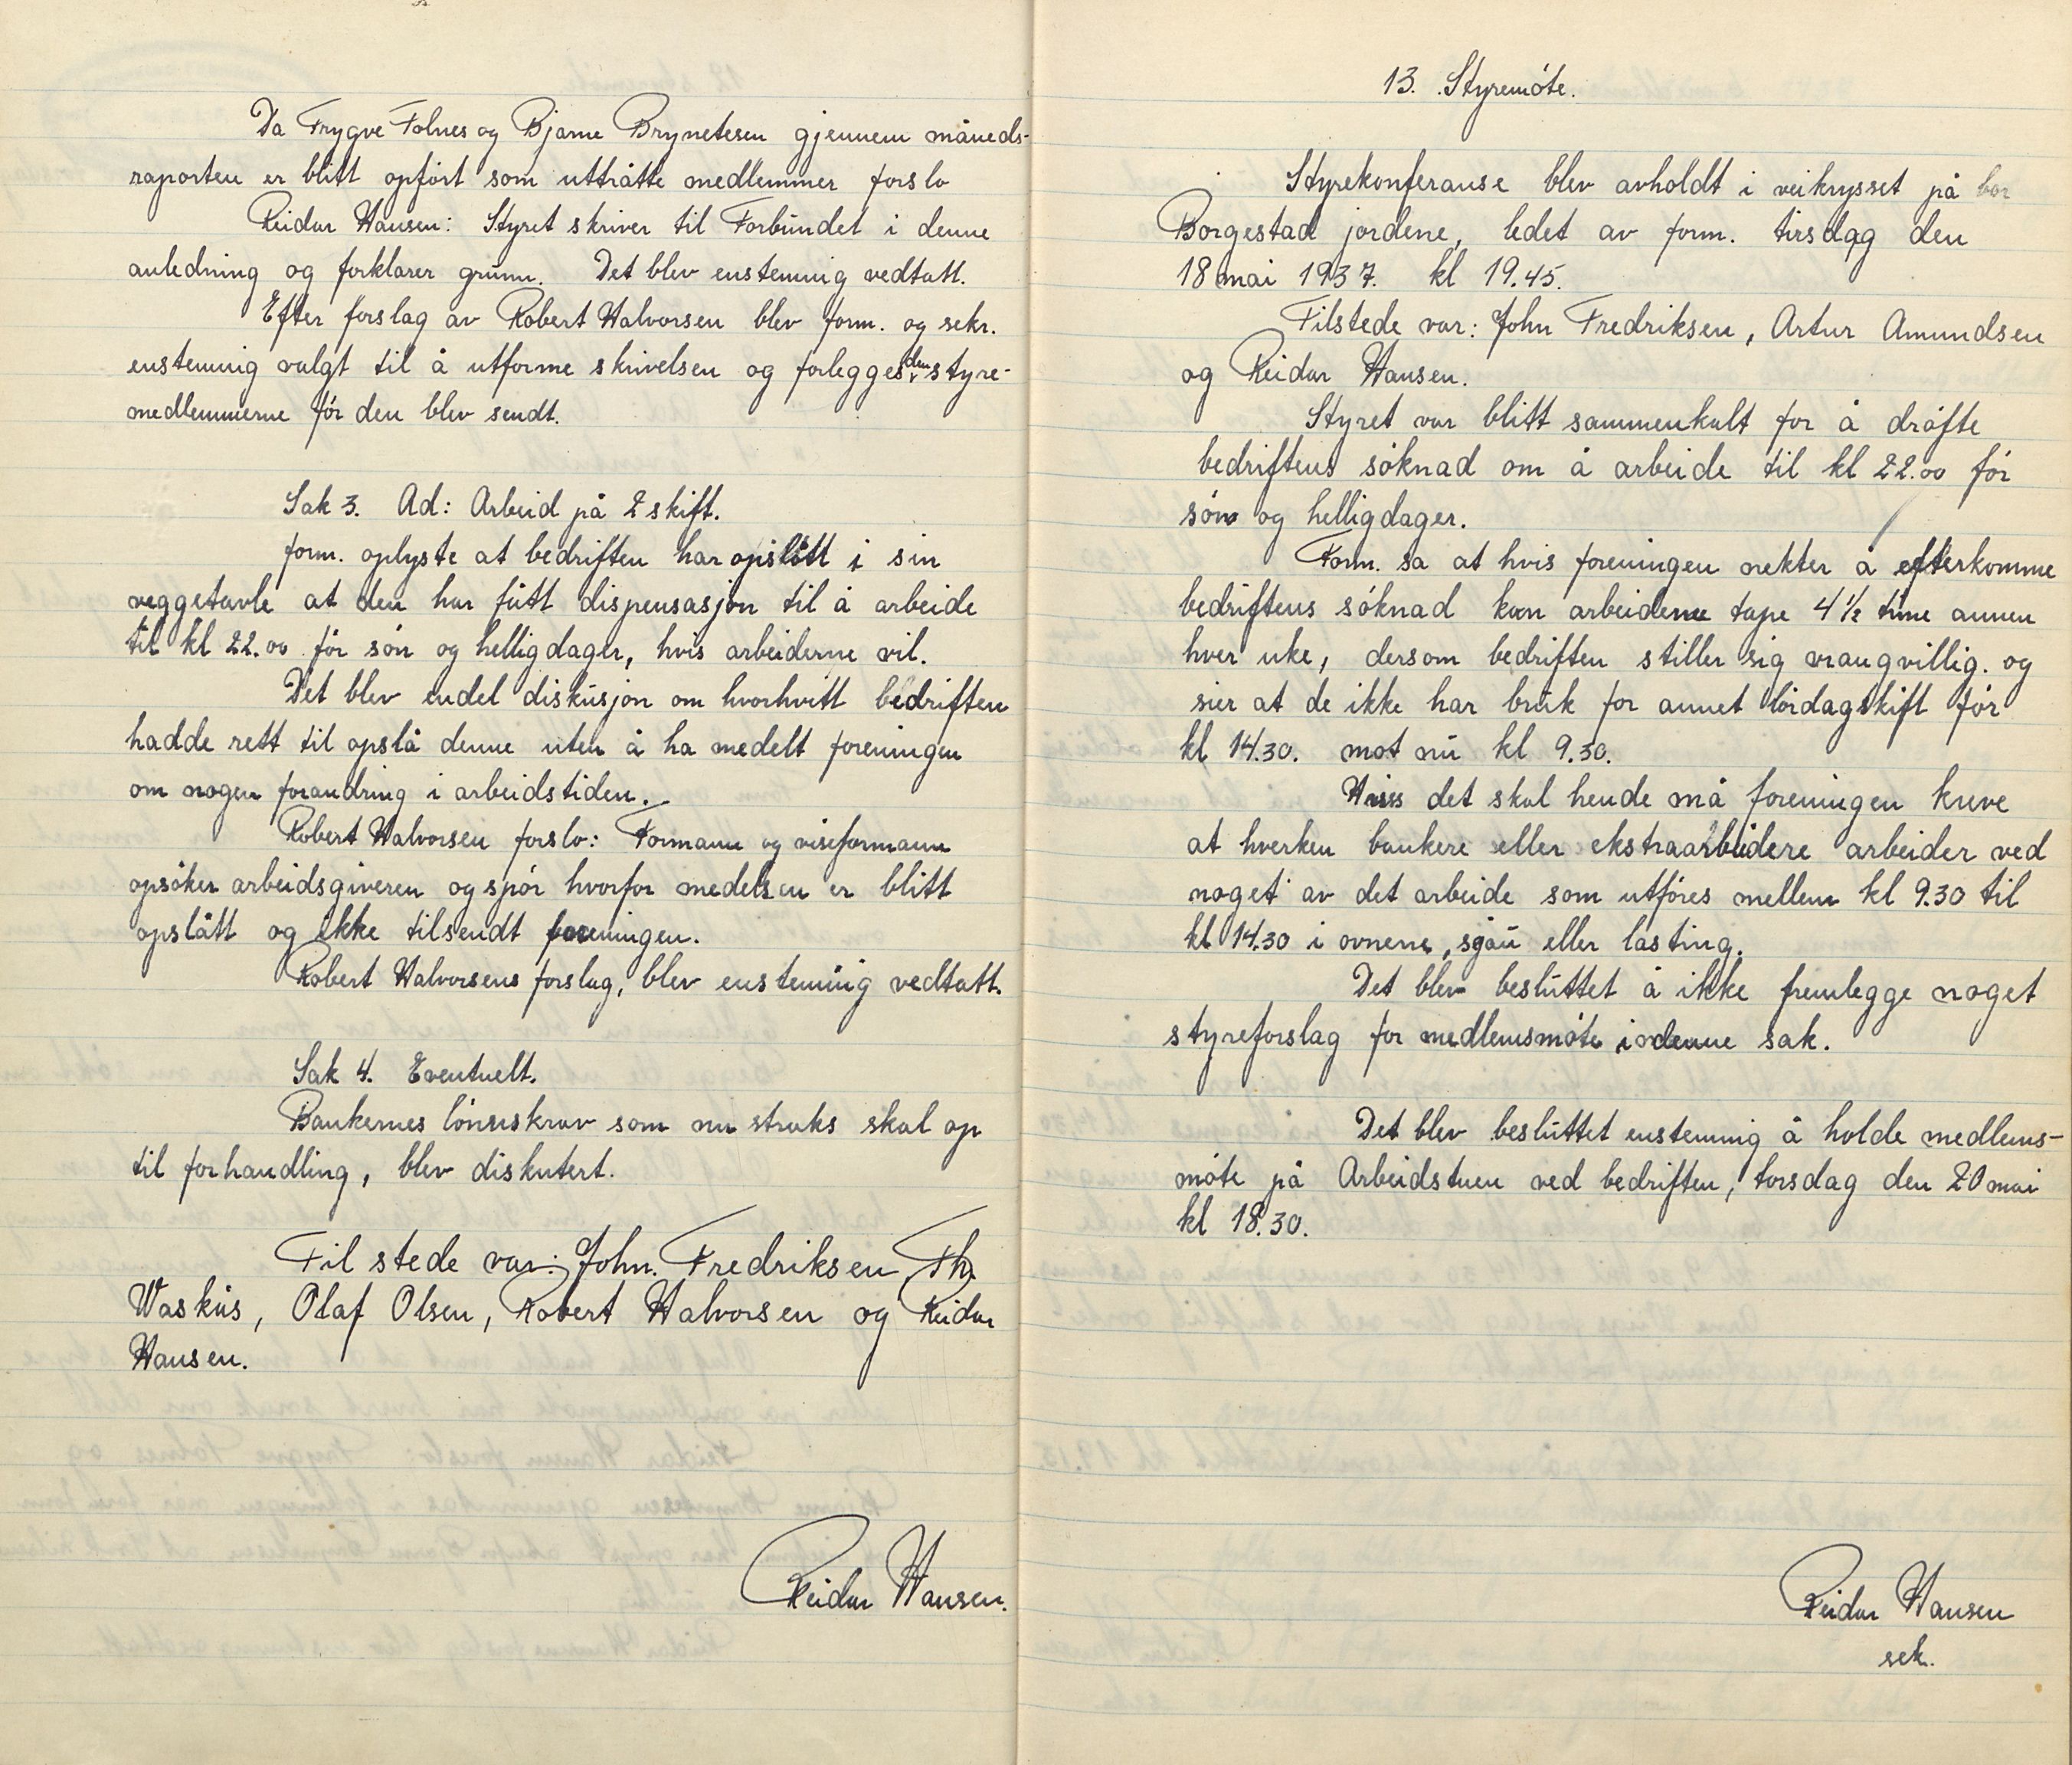 Da Trygve Folnes og Bjarne Brynetesen gjennem måneds-
raporten er blitt opført som uttrådte medlemmer forslo
Reidar Hansen: Styret skriver til Forbundet i denne
anledning og forklarer grunn. Det blev enstemmig vedtatt.
Efter forslag av Robert Halvorsen blev form. og sekr.
enstemmig valgt til å utforme skrivelsen og forlegges den styre-
medlemmerne før den blev sendt.
Sak 3. Ad: Arbeid på 2 skift.
form. oplyste at bedriften har opslått i sin
veggetavle at den har fått dispensasjon til å arbeide
til kl 22.00 før søn og helligdager, hvis arbeiderne vil.
Det blev endel diskusjon om hvorhvitt bedriften
hadde rett til opslå denne uten å ha medelt foreningen
om nogen forandring i arbeidstiden.
Robert Halvorsen forslo: Formann og viseformann
opsøker arbeidsgiveren og spør hvorfor medelsen er blitt
opslått og ikke tilsendt foreningen.
Robert Halvorsens forslag, blev enstemmig vedtatt.
Sak 4. Eventuelt.
Bankernes lønnskrav som nu straks skal op
til forhandling, blev diskutert.
Til stede var: John. Fredriksen, Th.
Waskus, Olaf Olsen, Robert Halvorsen og Reidar
Hansen.
Reidar Hansen.
13. Styremøte.
Styrekonferanse blev avholdt i veikrysset på bor
Borgestad jordene, ledet av form. tirsdag den
18 mai 1937. kl 19.45.
Tilstede var: John Fredriksen, Artur Amundsen
og Reidar Hansen.
Styret var blitt sammenkalt for å drøfte
bedriftens søknad om å arbeide til kl 22.00 før
søn og helligdager.
Form. sa at hvis foreningen nekter å efterkomme
bedriftens søknad kan arbeiderne tape 4 ½ time annen
hver uke, dersom bedriften stiller sig vrangvillig. og
sier at de ikke har bruk for annet lørdagskift før
kl 14.30. mot nu kl 9.30.
Hviss det skal hende må foreningen kreve
at hverken bankere eller ekstraarbeidere arbeider ved
noget av det arbeide som utføres mellem kl 9.30 til
kl 14.30 i ovnene, sjau eller lasting.
Det blev besluttet å ikke fremlegge noget
styreforslag for medlemsmøte i denne sak.
Det blev besluttet enstemmig å holde medlems-
møte på Arbeidstuen ved bedriften, torsdag den 20 mai
kl 18.30.
Reidar Hansen
sek.